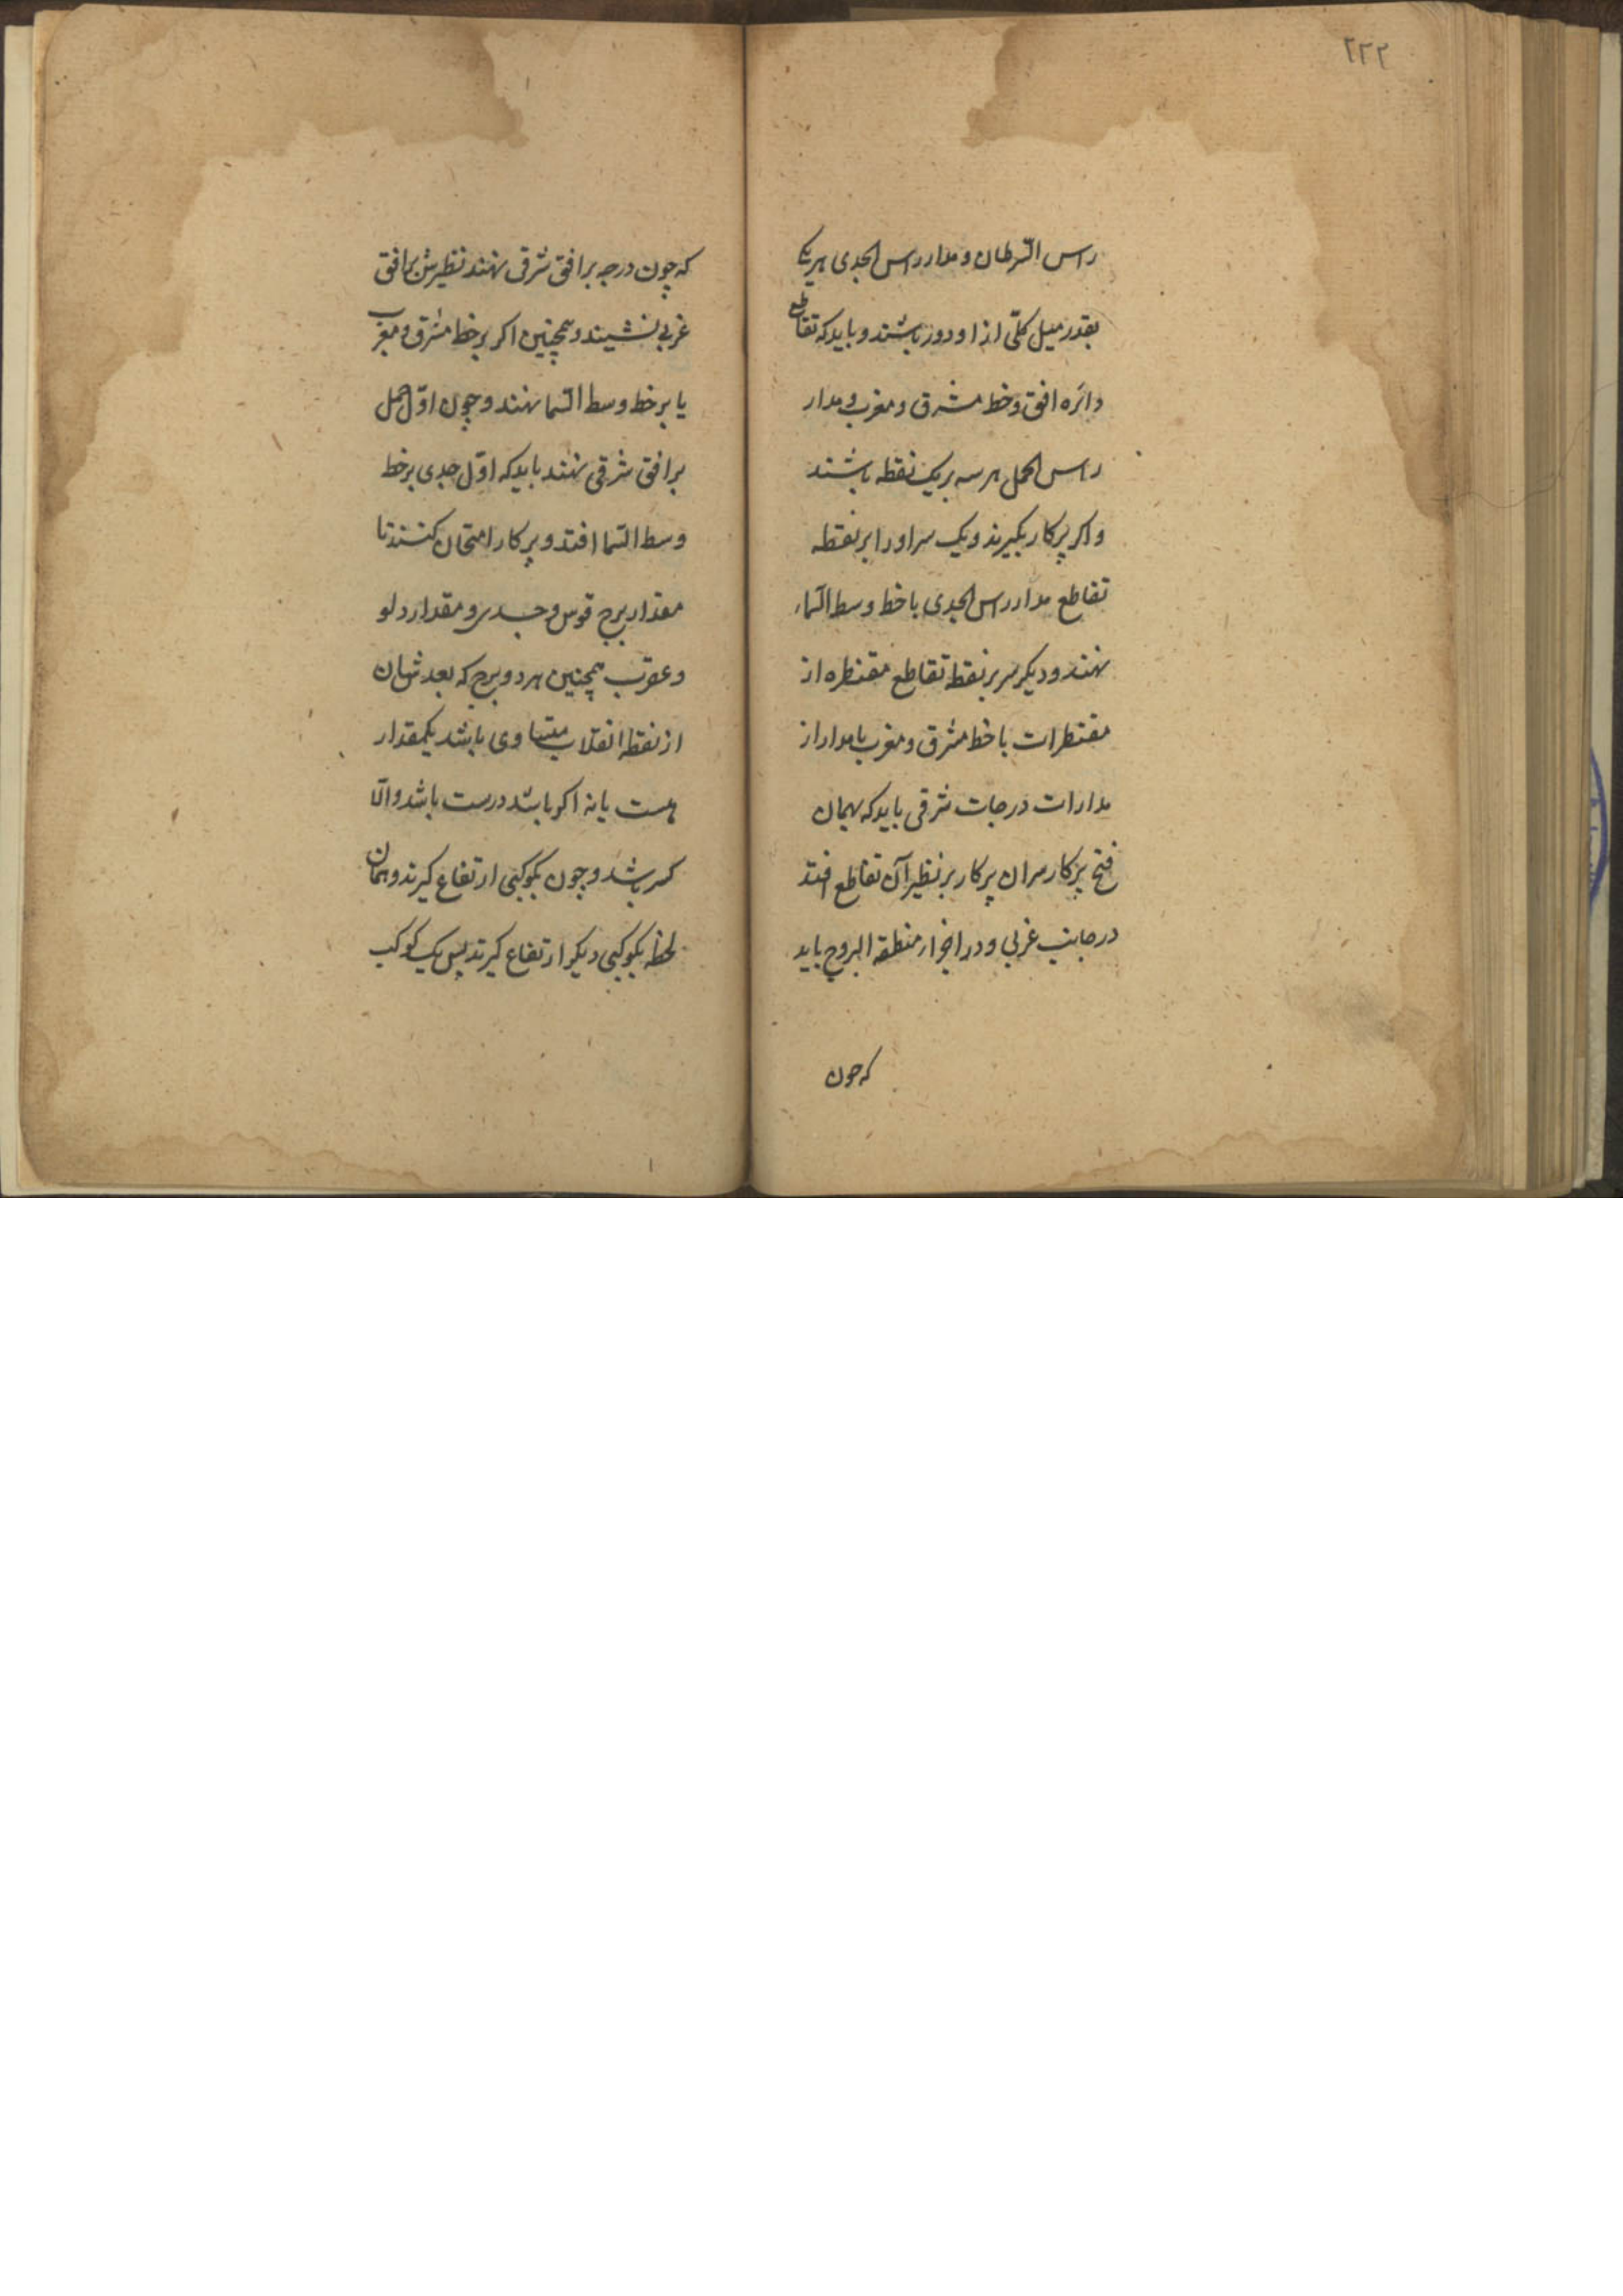 ۲۲۲
راس السّرطان و مدار راس الجدی هریک
بقدر میل کلّی از او دور باشند و باید که تقاطع
دائره افق و خط مشرق و مغرب و مدار
راس الحمل هر سه بر یک نقطه باشند
و اکر پرکار بکیرند و یک سر او را بر نقطه
تقاطع مدار راس الجدی با خط وسط السّماء
نهند و دیکر سر بر نقطه تقاطع مقنطره از
مقنطرات با خط مشرق و مغرب یا مدار از
مدارات درجات شرقی باید که بهمان
فتح پرکار سر ان پرکار بر نظیر آن تقاطع افتد
در جانب غربی و در اجزاء منطقة البروج باید
که چون
که چون درجه بر افق شرقی نهند نظیرش بر افق
غربی نشیند و همچنین اکر بر خط مشرق و مغرب
یا بر خط وسط السّما نهند و چون اوّل حمل
بر افق شرقی نهند باید که اوّل جدی بر خط
وسط السّما افتد و پرکار امتحان کنند تا
مقدار برج قوس و جدی و مقدار دلو
و عقرب همچنین هر دو برج که بعد شان
از نقطه انقلاب متساوی باشد یکمقدار
هست یا نه اکر باشد درست باشد والّا
کسر باشد و چون بکوکبی ارتفاع کیرند و همان
لحظه بکوکبی دیکر ارتفاع کیرند پس یک کوکب